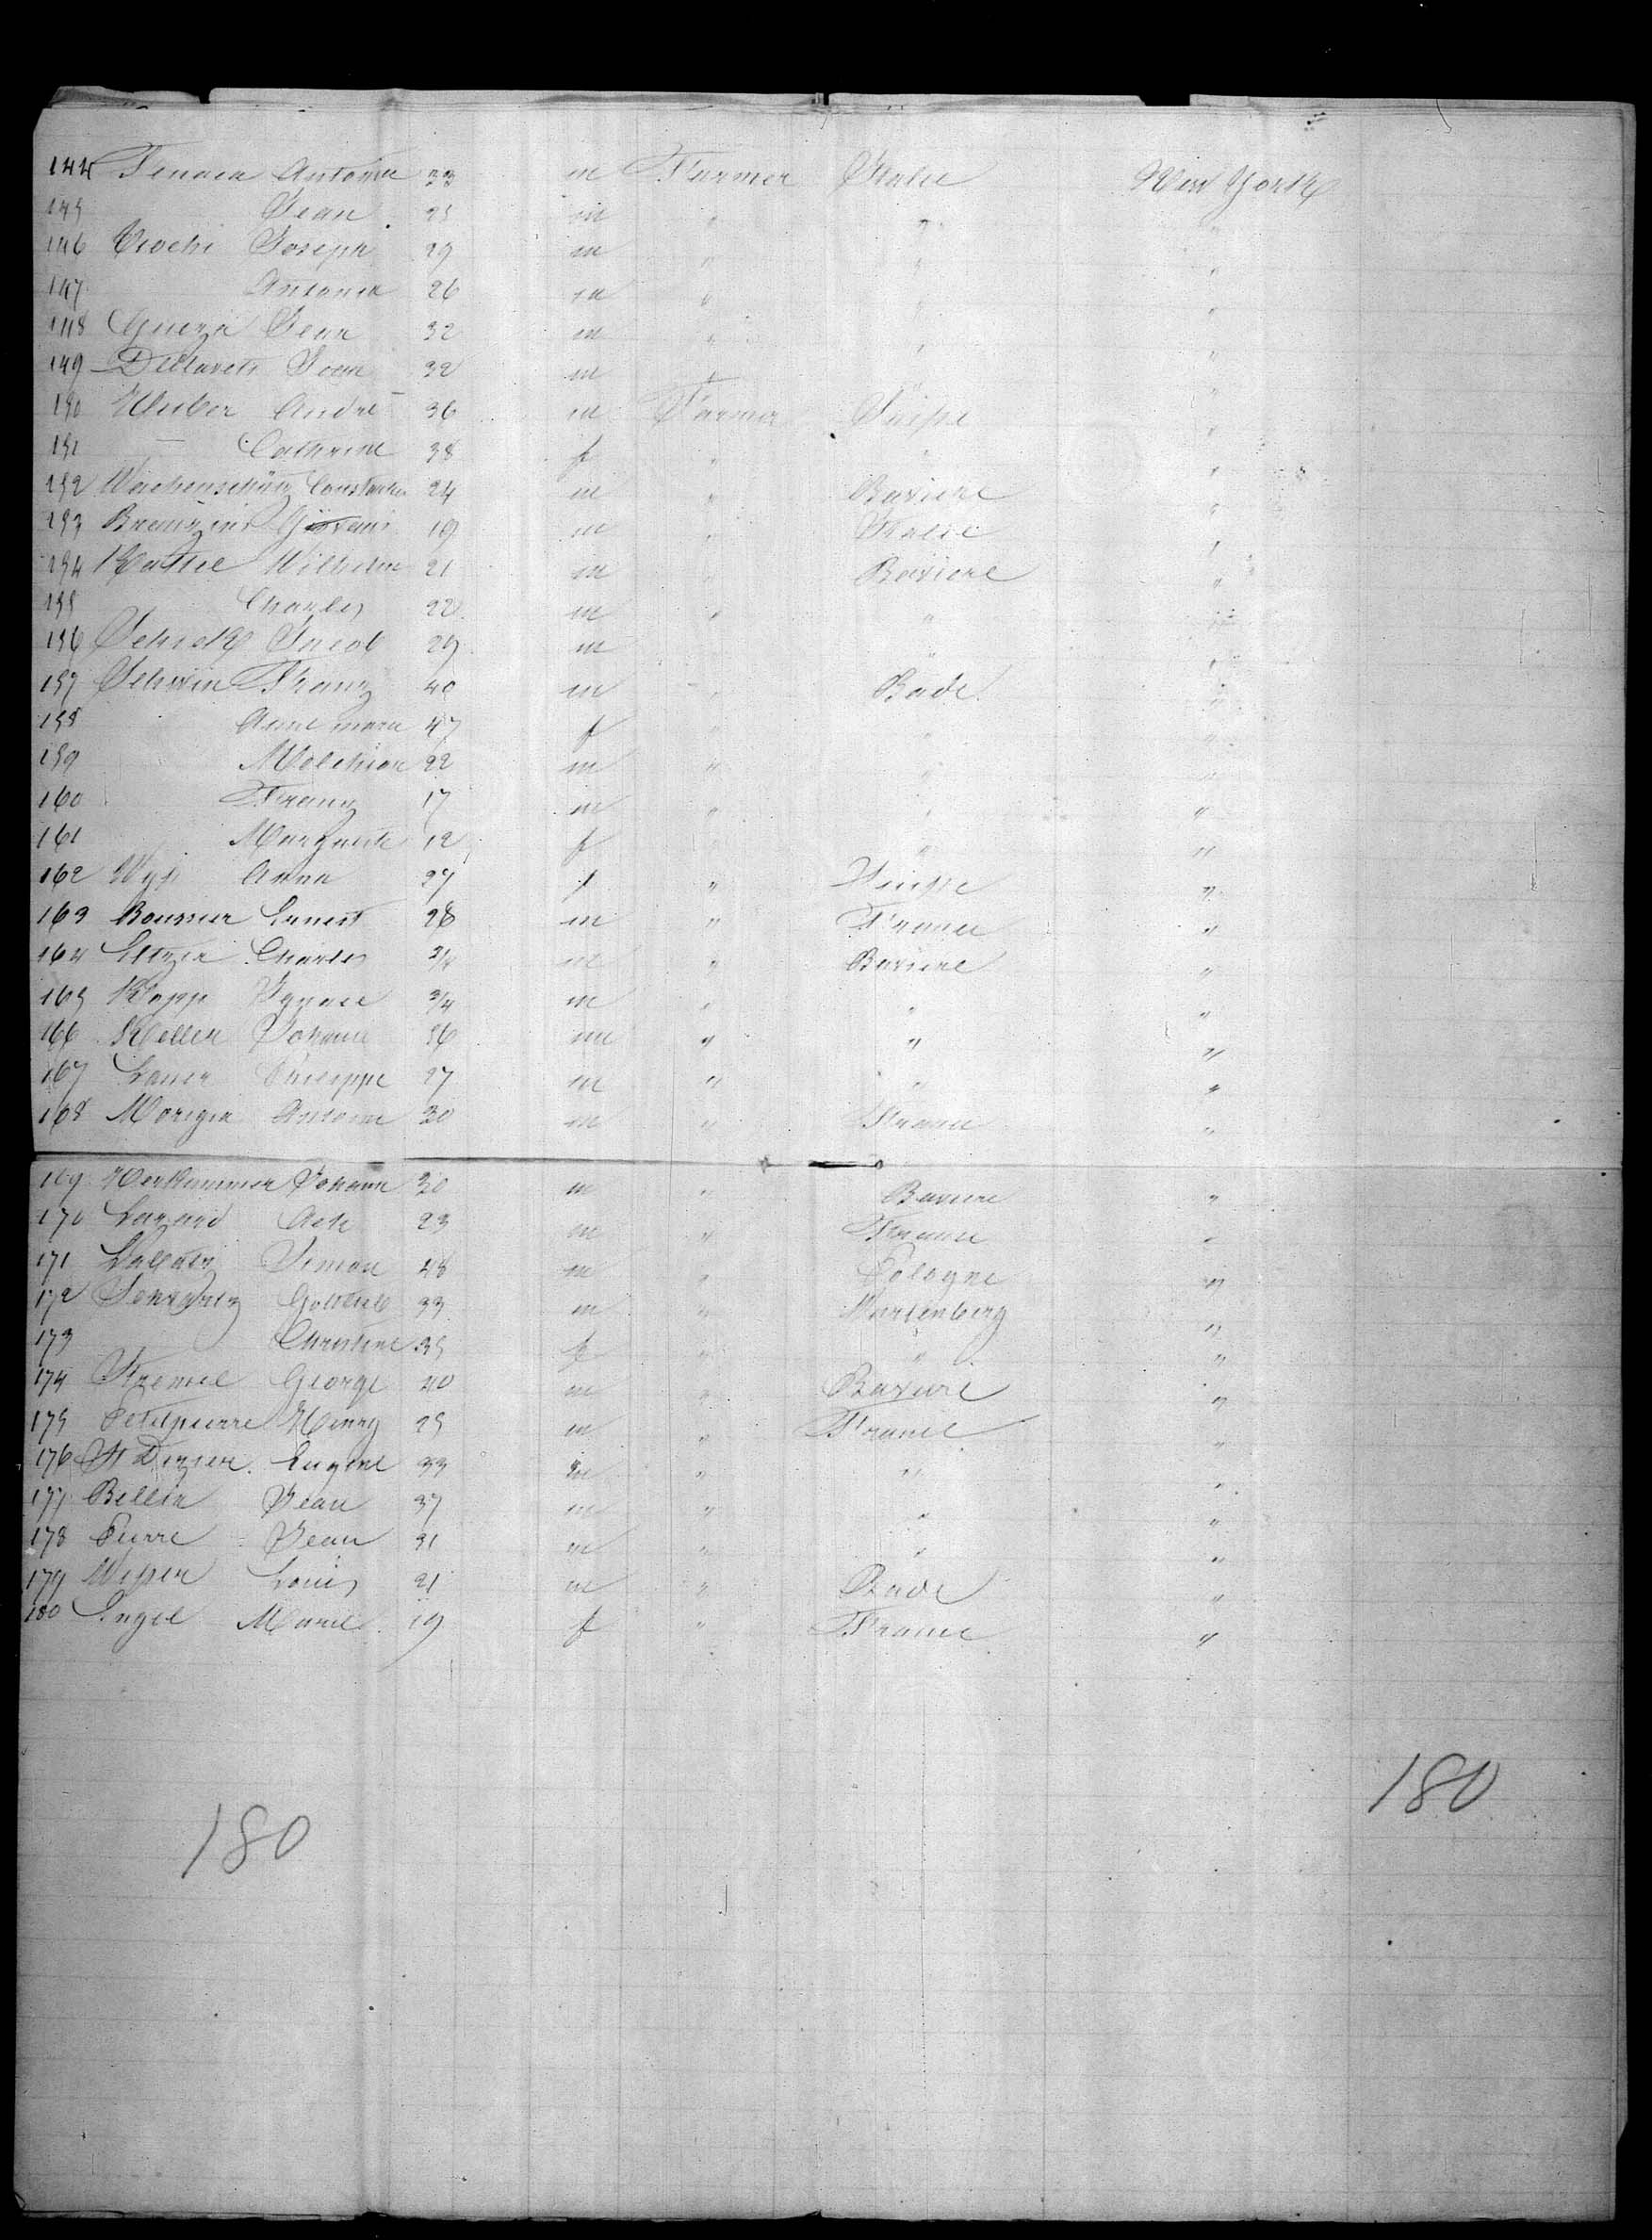 144 Antoine 33 m Farmer Italie New York
145 Jean 25 m " " "
146 Joseph 29 m " " "
147 Antonia 26 m " " "
148 Jean 32 m " " "
149 Jean 32 m " " "
150 Huber André 36 m Farmer Suisse "
151 — Cathrine 38 f " " "
152 Constantin 24 m " Baviere "
153 Giovani 19 m " Italie "
154 Wilhelm 21 m " Baviere "
155 Charles 22 m " " "
156 Schick Jacob 29 m " "
157 Schwin Franz 40 m " Bade "
158 Anne maria 47 f " " "
159 Melchior 22 m " " "
160 Franz 17 m " " "
161 Marguerite 12 f " " "
162 Wyss Anna 27 f " Suisse "
163 Ernest 28 m " France "
164 Charles 3/4 m " Baviere "
165 Klopp Ignace 3/4 m " " "
166 Keller Johann 56 m " " "
167 Lauer Philippe 27 m " " "
168 Antoine 30 m " France "
169 Johann 30 m " Baviere "
170 Lazard 23 m " France "
171 Simon 48 m " Pologne "
172 Gottlieb 33 m " Wurtenberg "
173 Christine 35 f " " "
174 George 40 m " Baviere "
175 Petitpierre Henry 25 m " France "
176 St Dizier Eugene 33 m " " "
177 Jean 37 m " " "
178 Pierre Jean 31 m " " "
179 Louis 21 m " Bade "
180 Engel Marie 19 f " France "
180
180